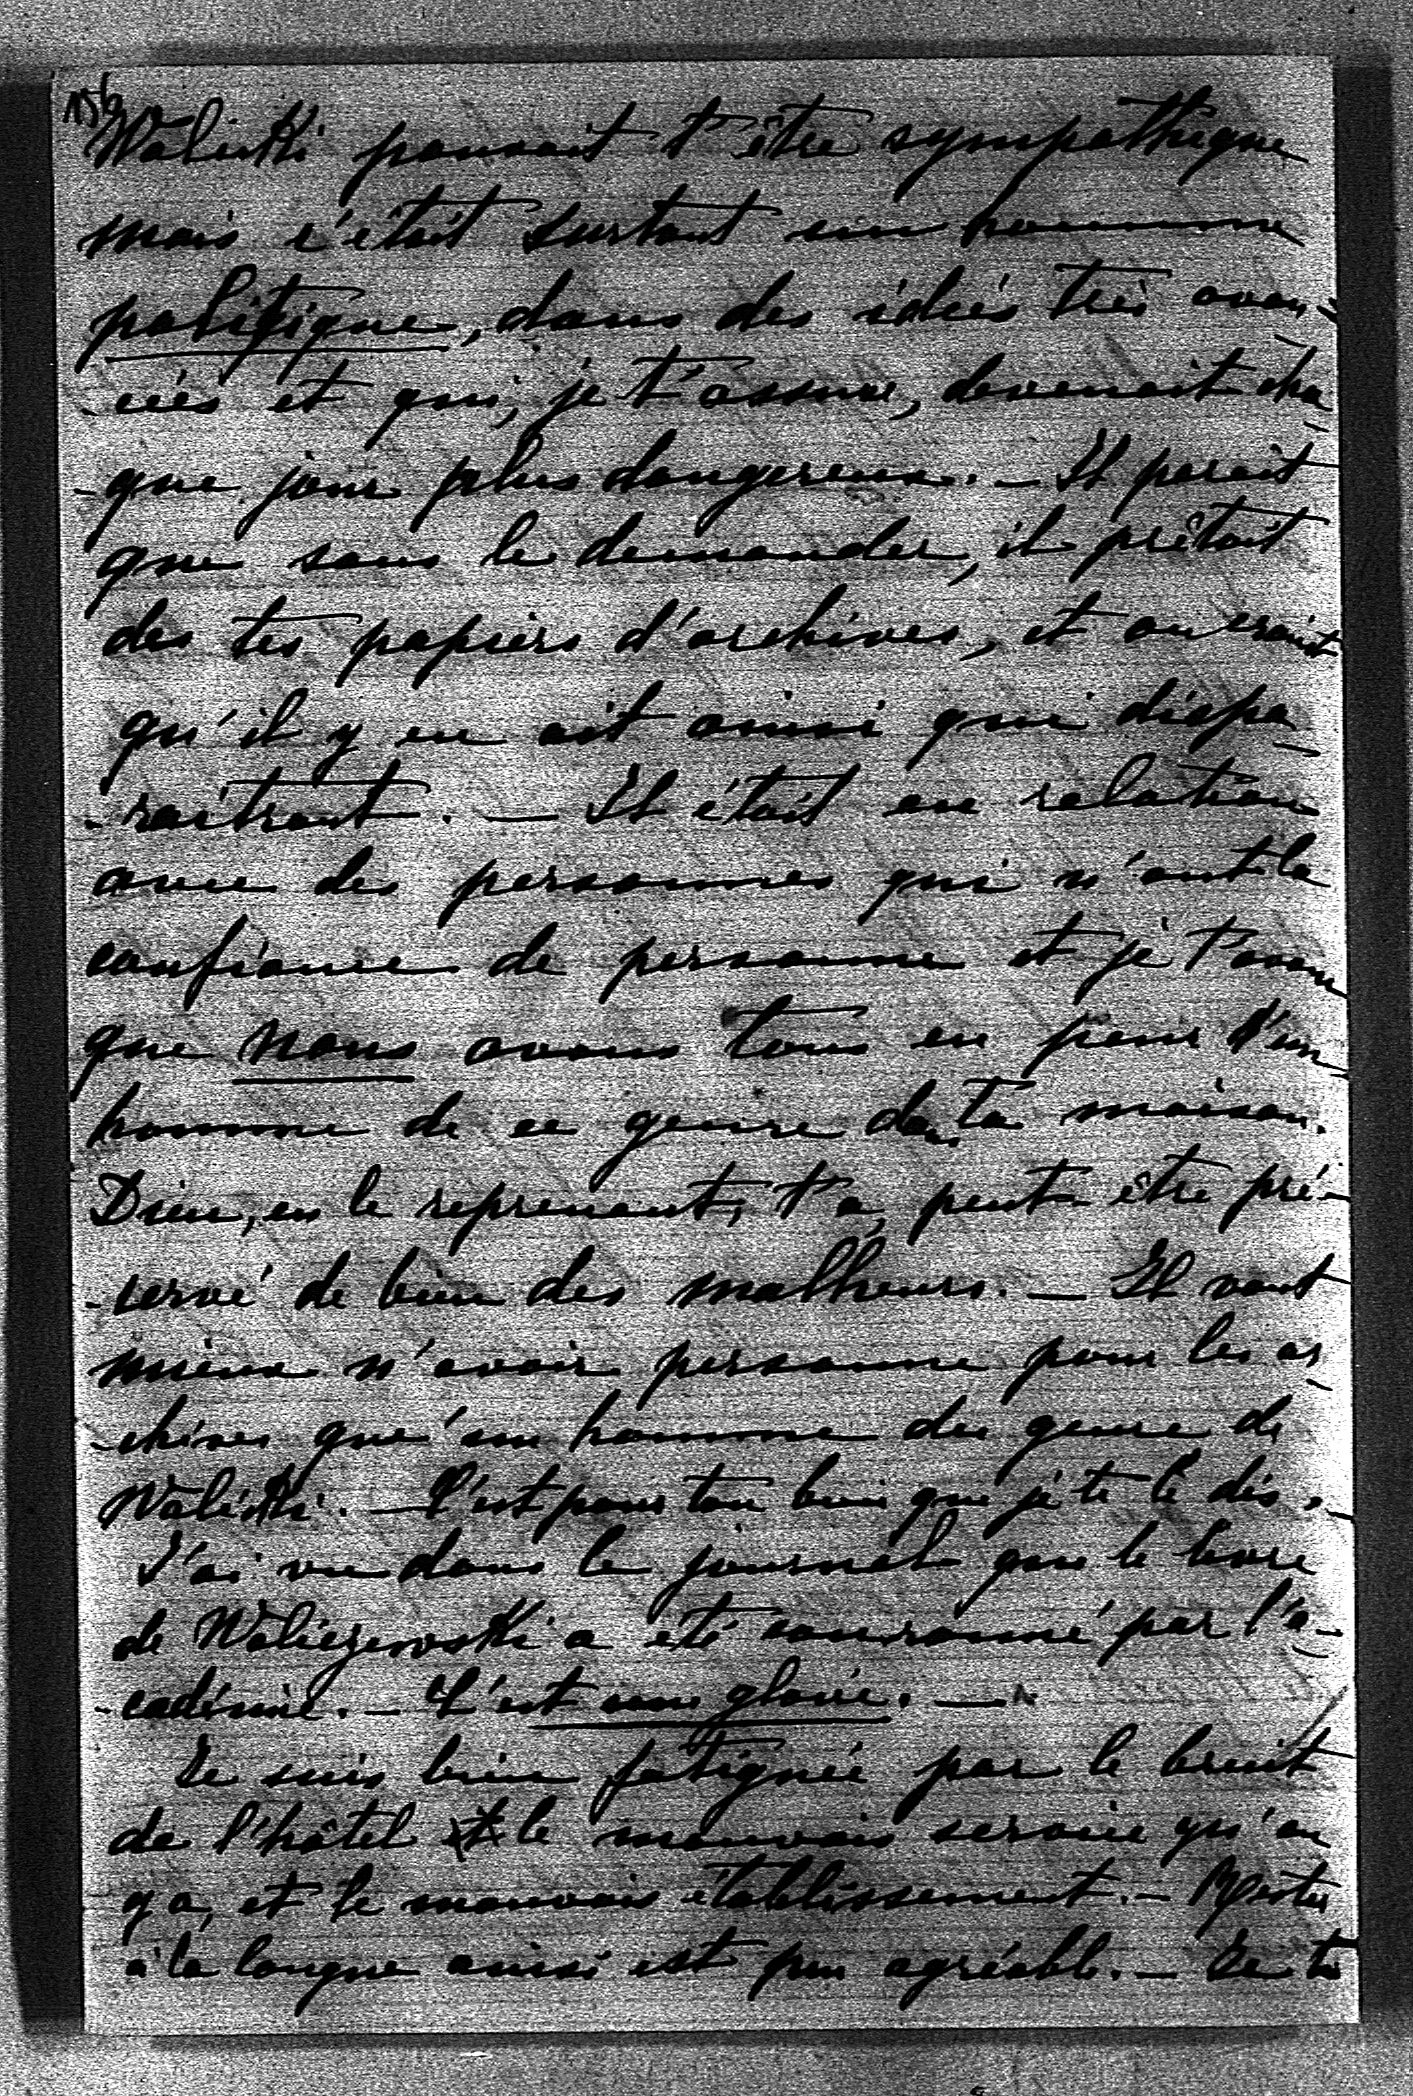 156
Walicki pouvait t'être sympathique
mais c'était surtout un homme
politique, dans des idées très avan-
-cées et qui, je t'assure, devenait cha-
-que jour plus dangereux. — Il parait
que sans le demander, il prêtait
des tes papiers d'archives, et on croit
qu'il y en ait ainsi qui dispa-
-raitront. — Il était en relation
avec des personnes qui n'ont la
confiance de personne et je t'avoue
que nous avons tous eu peur d'un
homme de ce genre dans ta maison.
Dieu, en le reprenant, t'a peut-être pré-
-servé de bien des malheurs. — Il vaut
mieux n'avoir personne pour les ar-
-chives qu'un homme du genre de
Walicki. — C'est pour ton bien que je te le dis. —
J'ai vu dans le journal que le livre
de Waliszewski a été couronné par l'a-
-cadémie. — C'est une gloire. —
Je suis bien fatiguée par le bruit
de l'hôtel et le mauvais service qu'on
y a, et le mauvais établissement. — Rester
à la longue ainsi est peu agréable. — Je te